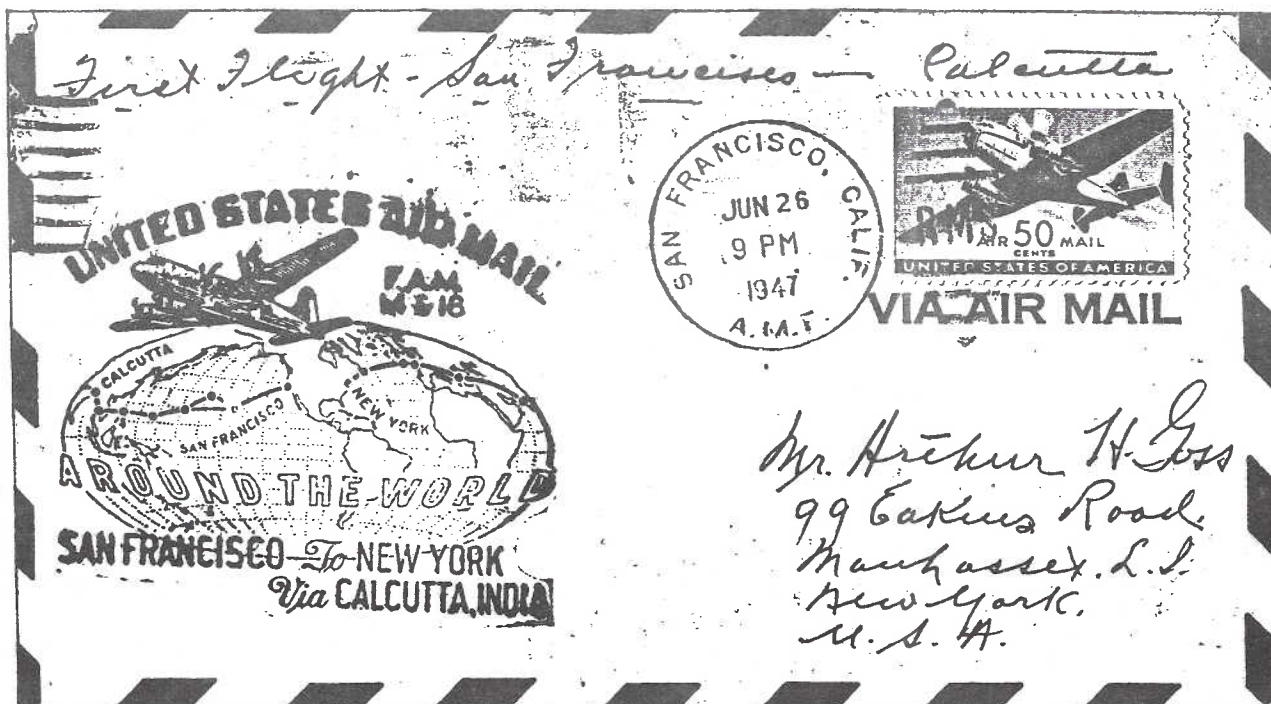 First Flight - San Francisco — Calcutta
UNITED STATES AIR MAIL
F.A.M.
14 & 18
CALCUTTA
SAN FRANCISCO
NEW YORK
AROUND THE WORLD
SAN FRANCISCO To NEW YORK
Via CALCUTTA, INDIA
SAN FRANCISCO, CALIF.
JUN 26
9 PM
1947
A.M.F.
RMS
AIR 50 MAIL
CENTS
UNITED STATES OF AMERICA
VIA AIR MAIL
Mr. Arthur H. Goss
99 Eakins Road.
Manhasset. L.I.
New York.
U.S.A.